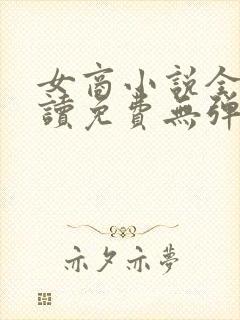 女商小說全
讀免費無彈
亦夕亦夢